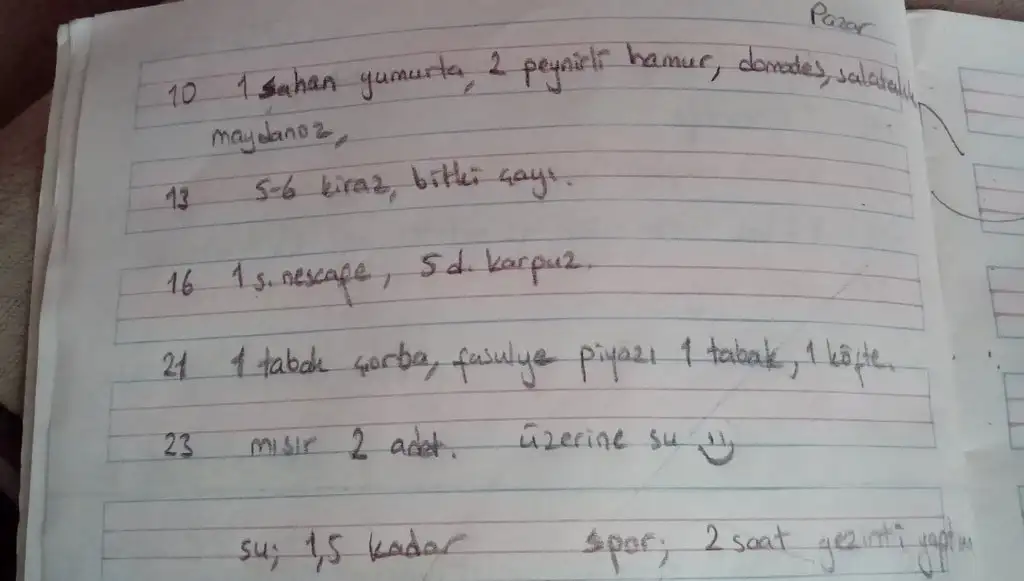 Pazar
10 1 sahan yumurta, 2 peynirli hamur, domades, salatalık
maydanoz,
13 5-6 kiraz, bitki çayı.
16 1 s. nescafe, 5 d. karpuz.
21 1 tabak çorba, fasulye piyazı 1 tabak, 1 köfte.
23 mısır 2 adet. üzerine su
su; 1,5 kadar spor; 2 saat gezinti yaptım